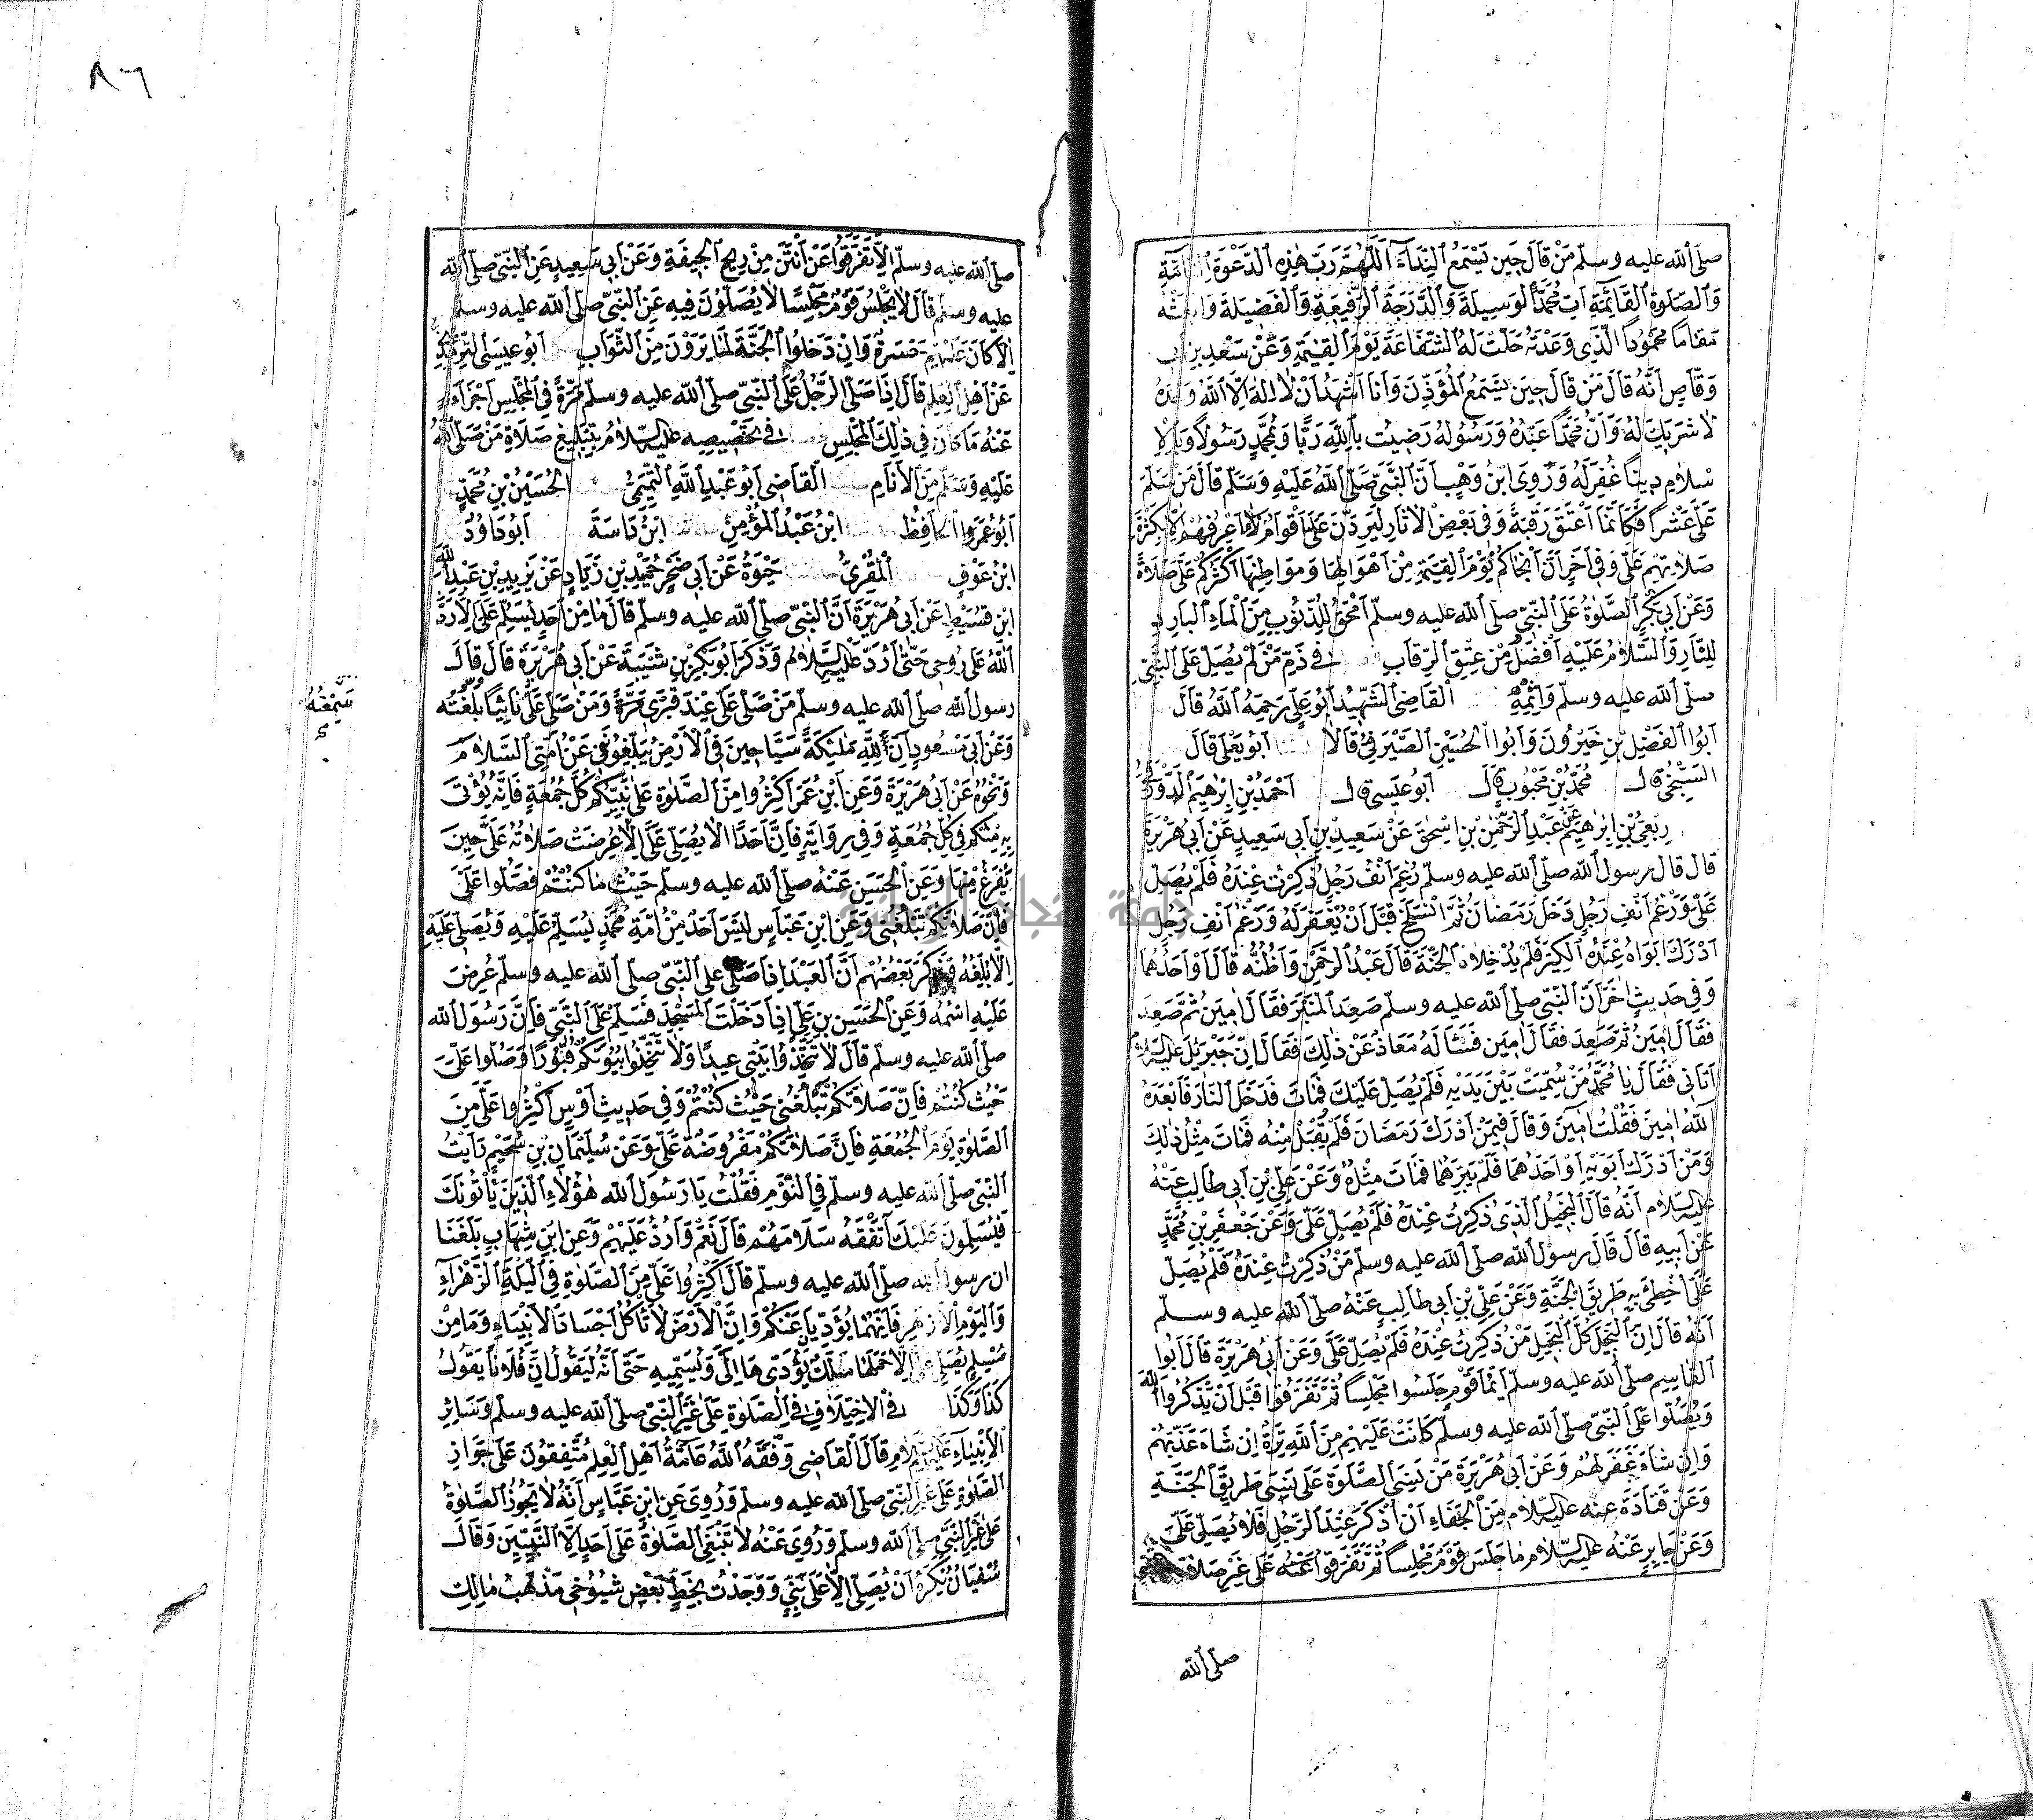 صلى الله عليه وسلم من قال حين يسمع النداء اللهم رب هذه الدعوة التامة
والصلوة القائمة ات محمدا الوسيلة والدرجة الرفيعة والفضيلة وابعثه
مقاما محمودا الذى وعدته حلت له الشفاعة يوم القيمة وعن سعد بن ابى
وقاص انه قال من قال حين يسمع المؤذن وانا اشهد ان لا اله الا الله وحده
لا شريك له وان محمدا عبده ورسوله رضيت بالله ربا وبمحمد رسولا وبالا
سلام دينا غفر له وروى ابن وهب ان النبى صلى الله عليه وسلم قال من سلم
على عشرا فكانما اعتق رقبة وفى بعض الاثار ليردن على اقوام لا اعرفهم الا بكثرة
صلاتهم على وفى اخر ان انجاكم يوم القيمة من اهوالها ومواطنها اكثركم على صلاة
وعن ابى بكر الصلوة على النبى صلى الله عليه وسلم امحق للذنوب من الماء البارد
للنار والسلام عليه افضل من عتق الرقاب فى ذم من لم يصل على النبى
صلى الله عليه وسلم واثمه القاضى الشهيد ابو على رحمه الله قال
ابوا الفضل بن خيرون وابوا الحسين الصيرفى قالا ابو يعلى قال
السنجى قال محمد بن محبوب قال ابو عيسى قال احمد بن ابرهيم الدورقى
ربعى بن ابرهيم عن عبد الرحمن بن اسحق عن سعيد بن ابى سعيد عن ابى هريرة
قال قال رسول الله صلى الله عليه وسلم رغم انف رجل ذكرت عنده فلم يصل
على ورغم انف رجل دخل رمضان ثم انسلخ قبل ان يغفر له ورغم انف رجل
ادرك ابواه عنده الكبر فلم يدخلاه الجنة قال عبد الرحمن واظنه قال او احدهما
وفى حديث اخر ان النبى صلى الله عليه وسلم صعد المنبر فقال امين ثم صعد
فقال امين ثم صعد فقال امين فسأله معاذ عن ذلك فقال ان جبريل عليه السلام
اتانى فقال يا محمد من سميت بين يديه فلم يصل عليك فمات فدخل النار فابعده
الله امين فقلت امين وقال فيمن ادرك رمضان فلم يقبل منه فمات مثل ذلك
ومن ادرك ابويه او احدهما فلم يبرهما فمات مثله وعن على بن ابى طالب عنه
عليه السلام انه قال البخيل الذى ذكرت عنده فلم يصل على وعن جعفر بن محمد
عن ابيه قال قال رسول الله صلى الله عليه وسلم من ذكرت عنده فلم يصل
على اخطئ به طريق الجنة وعن على بن ابى طالب عنه صلى الله عليه وسلم
انه قال ان البخيل كل البخيل من ذكرت عنده فلم يصل على وعن ابى هريرة قال ابوا
القاسم صلى الله عليه وسلم ايما قوم جلسوا مجلسا ثم تفرقوا قبل ان يذكروا الله
ويصلوا على النبى صلى الله عليه وسلم كانت عليهم من الله ترة ان شاء عذبهم
وان شاء غفر لهم وعن ابى هريرة من نسى الصلوة على نسى طريق الجنة
وعن قتادة عنه عليه السلام من الجفاء ان اذكر عند الرجل فلا يصلى على
وعن جابر عنه عليه السلام ما جلس قوم مجلسا ثم تفرقوا عنه على غير صلاة
صلى الله
٨٦
صلى الله عليه وسلم الا تفرقوا عن انتن من ريح الجيفة وعن ابى سعيد عن النبى صلى الله
عليه وسلم قال لا يجلس قوم مجلسا لا يصلون فيه عن النبى صلى الله عليه وسلم
الا كان عليهم حسرة وان دخلوا الجنة لما يرون من الثواب ابو عيسى الترمذى
عن اهل العلم قال اذا صلى الرجل على النبى صلى الله عليه وسلم مرة فى المجلس اجزاء
عنه ما كان فى ذلك المجلس فى تخصيصه عليه السلام بتبليغ صلاة من صلى الله
عليه وسلم من الانام القاضى ابو عبد الله التميمى الحسين بن محمد
ابو عمروا الحافظ ابن عبد المؤمن ابن داسة ابو داود
ابن عوف المقرئ حيوة عن ابى صخر حميد بن زياد عن يزيد بن عبد الله
ابن قسيط عن ابى هريرة ان النبى صلى الله عليه وسلم قال ما من احد يسلم على الا رد
الله على روحى حتى ارد عليه السلام وذكر ابو بكر بن شيبة عن ابى هريرة قال قال
رسول الله صلى الله عليه وسلم من صلى على عند قبرى مرة ومن صلى على نائيا بلغته
سمعته
وعن ابى مسعود ان لله ملئكة سياحين فى الارض يبلغونى عن امتى السلام
ونحوه عن ابى هريرة وعن ابن عمر اكثروا من الصلوة على نبيكم كل جمعة فانه يؤتى
به منكم فى كل جمعة وفى رواية فان احدا لا يصلى على الا عرضت صلاته على حين
يفرغ منها وعن الحسن عنه صلى الله عليه وسلم حيث ما كنتم فصلوا على
فان صلاتكم تبلغنى وعن ابن عباس ليس احد من امة محمد يسلم عليه ويصلى عليه
الا بلغه وذكر بعضهم ان العبد اذا صلى على النبى صلى الله عليه وسلم عرض
عليه اسمه وعن الحسن بن على اذا دخلت المسجد فسلم على النبى فان رسول الله
صلى الله عليه وسلم قال لا تتخذوا بيتى عيدا ولا تتخذوا بيوتكم قبورا وصلوا على
حيث كنتم فان صلاتكم تبلغنى حيث كنتم وفى حديث اوس اكثروا على من
الصلوة يوم الجمعة فان صلاتكم مفروضه على وعن سليمان بن سحيم رايت
النبى صلى الله عليه وسلم فى النوم فقلت يا رسول الله هؤلاء الذين يأتونك
فيسلمون عليك اتفقه سلامهم قال نعم وارد عليهم وعن ابن شهاب بلغنا
ان رسول الله صلى الله عليه وسلم قال اكثروا على من الصلوة فى الليلة الزهراء
واليوم الازهر فانهما يؤديان عنكم وان الارض لا تأكل اجساد الانبياء وما من
مسلم يصلى على الا حملها ملك يؤدى ها الى ويسميه حتى انه ليقول ان فلانا يقول
كذا وكذا فى الاختلاف فى الصلوة على غير النبى صلى الله عليه وسلم وسائر
الانبياء عليهم السلام قال القاضى وفقه الله عامة اهل العلم متفقون على جواز
الصلوة على غير النبى صلى الله عليه وسلم وروى عن ابن عباس انه لا يجوز الصلوة
على غير النبى صلى الله وسلم وروى عنه لا تنبغى الصلوة على احد الا النبيين وقال
سفيان يكره ان يصلى الا على نبى ووجدت بخط بعض شيوخى مذهب مالك